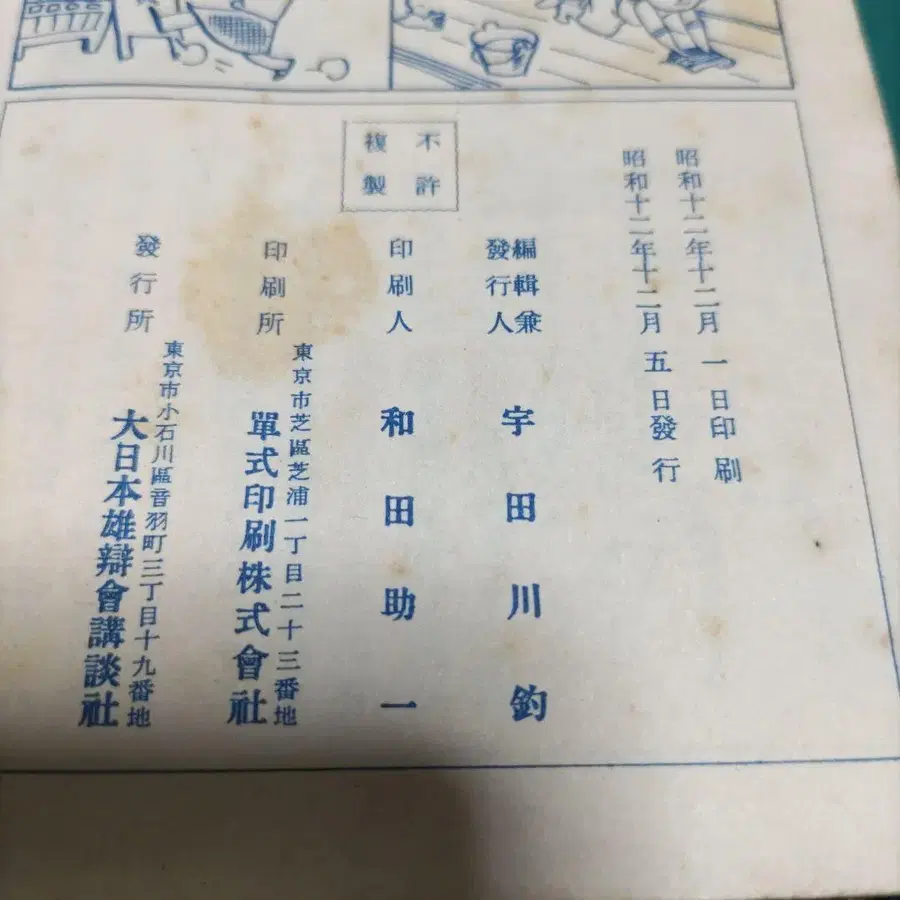 昭和十二年十二月一日印刷
昭和十二年十二月五日發行
不許
複製
編輯兼
發行人
宇田川鈞
印刷人
和田助一
印刷所
東京市芝區芝浦一丁目二十三番地
單式印刷株式會社
發行所
東京市小石川區音羽町三丁目十九番地
大日本雄辯會講談社